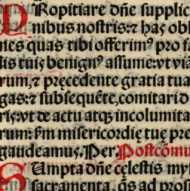 Ropitiare dñe supplic
nibus nostris: ⁊ has obl
nes quas tibi offerimꝰ pro i
lis tui: benignꝰ assume: vt via
rum: ⁊ precedente gratia tua
gas: ⁊ subsequēte, comitari d
ris: vt de actu atqꝫ incolumita
rum: ẜm misericordie tue pre
gaudeamus. Per. Postcōmu
Sumpta dñe celestis my
sacramenta,